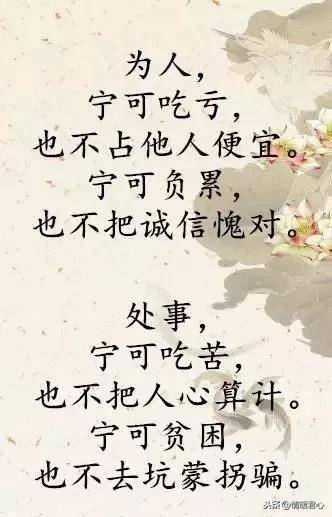 为人，
宁可吃亏，
也不占他人便宜。
宁可负累，
也不把诚信愧对。
处事，
宁可吃苦，
也不把人心算计。
宁可贫困，
也不去坑蒙拐骗。
头条@情暖君心